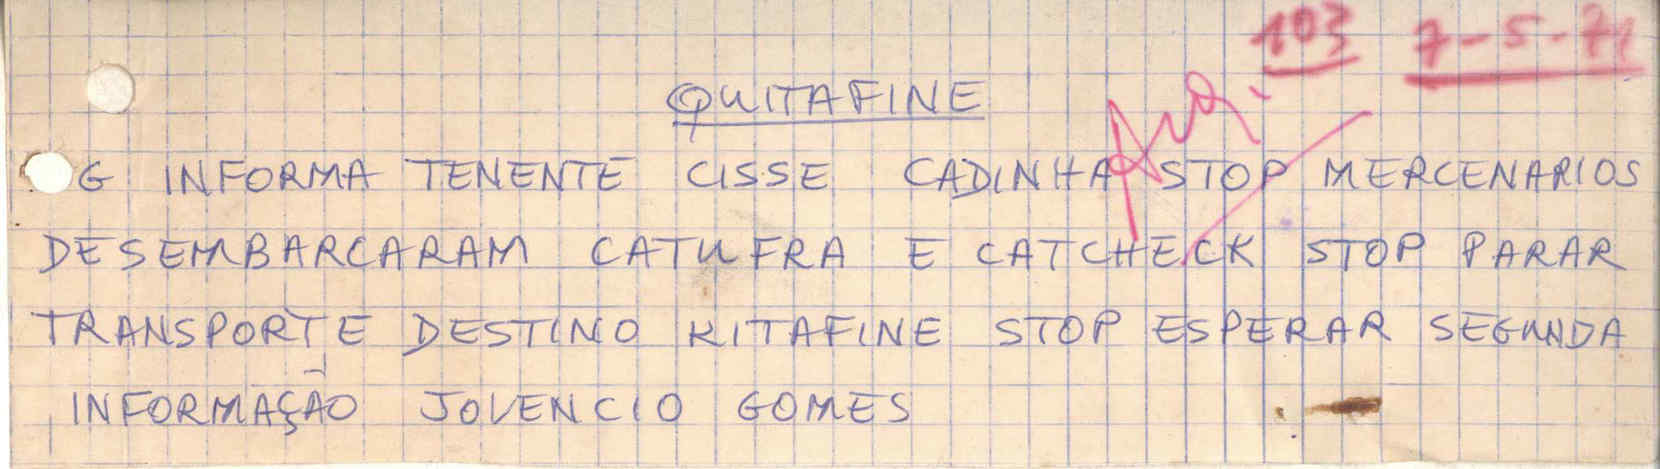 103 7-5-71
QUITAFINE
Arq.
G INFORMA TENENTE CISSE CADINHA STOP MERCENARIOS
DESEMBARCARAM CATUFRA E CATCHECK STOP PARAR
TRANSPORTE DESTINO KITAFINE STOP ESPERAR SEGUNDA
INFORMAÇÃO JOVENCIO GOMES